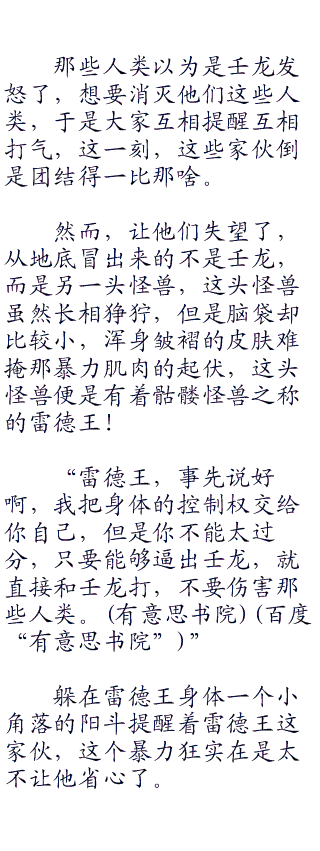 那些人类以为是壬龙发
怒了，想要消灭他们这些人
类，于是大家互相提醒互相
打气，这一刻，这些家伙倒
是团结得一比那啥。
然而，让他们失望了，
从地底冒出来的不是壬龙，
而是另一头怪兽，这头怪兽
虽然长相狰狞，但是脑袋却
比较小，浑身皱褶的皮肤难
掩那暴力肌肉的起伏，这头
怪兽便是有着骷髅怪兽之称
的雷德王！
“雷德王，事先说好
啊，我把身体的控制权交给
你自己，但是你不能太过
分，只要能够逼出壬龙，就
直接和壬龙打，不要伤害那
些人类。(有意思书院)(百度
“有意思书院”)”
躲在雷德王身体一个小
角落的阳斗提醒着雷德王这
家伙，这个暴力狂实在是太
不让他省心了。